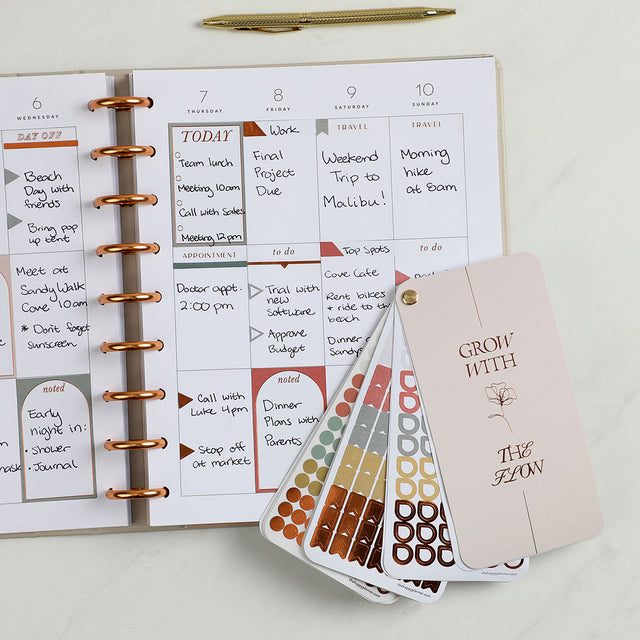 6
WEDNESDAY
DAY OFF
Beach
Day with
friends
Bring pop
up tent
Meet at
Sandy Walk
Cove 10am
* Don't forget
sunscreen
noted
Early
night in:
• Shower
• Journal
7
THURSDAY
TODAY
Team lunch
Meeting 10am
Call with Sales
Meeting 12pm
APPOINTMENT
Doctor appt.
2:00 pm
Call with
Luke 4pm
Stop off
at market
8
FRIDAY
Work
Final
Project
Due
to do
Trial with
new
software
Approve
Budget
noted
Dinner
Plans with
Parents
9
SATURDAY
TRAVEL
Weekend
Trip to
Malibu!
Top Spots
Cove Cafe
Rent bikes
+ ride to the
beach
Dinner
10
SUNDAY
TRAVEL
Morning
hike
at 8am
to do
GROW
WITH
THE
FLOW
thehappyplanner.com
thehappyplanner.com